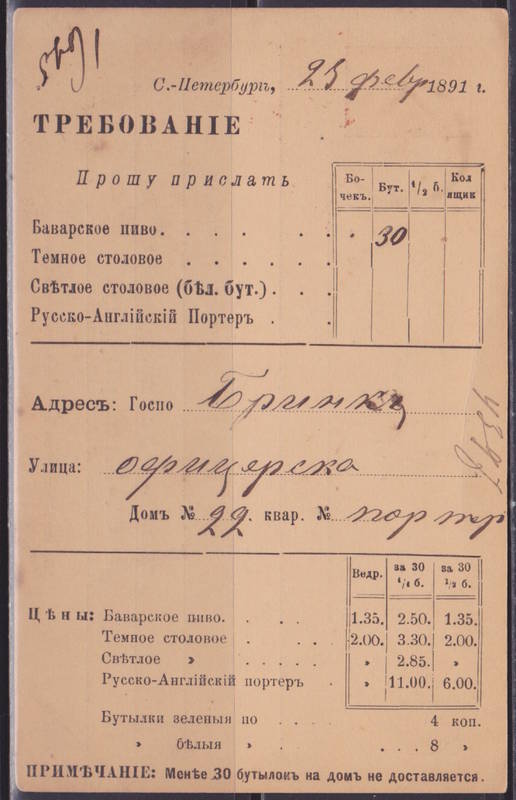 1645
С.-Петербургъ, 25 февр 1891 г.
ТРЕБОВАНІЕ
Прошу прислать
Бо-чекъ. Бут. 1/2 б. Кол ящик
Баварское пиво. . . . . . . 30
Темное столовое . . . . . .
Свѣтлое столовое (бѣл. бут.) . . .
Русско-Англійскій Портеръ . .
Адресъ: Госпо Бринкъ
Улица: офицерска
Домъ № 22. квар. № портр
Ведр. за 30 1/1 б. за 30 1/2 б.
Цѣны: Баварское пиво. . . . 1.35. 2.50. 1.35.
Темное столовое . . . . 2.00. 3.30. 2.00.
Свѣтлое » . . . . . » 2.85. »
Русско-Англійскій портеръ . » 11.00. 6.00.
Бутылки зеленыя по . . . . . 4 коп.
» бѣлыя » . . . . 8 »
ПРИМѢЧАНІЕ: Менѣе 30 бутылокъ на домъ не доставляется.